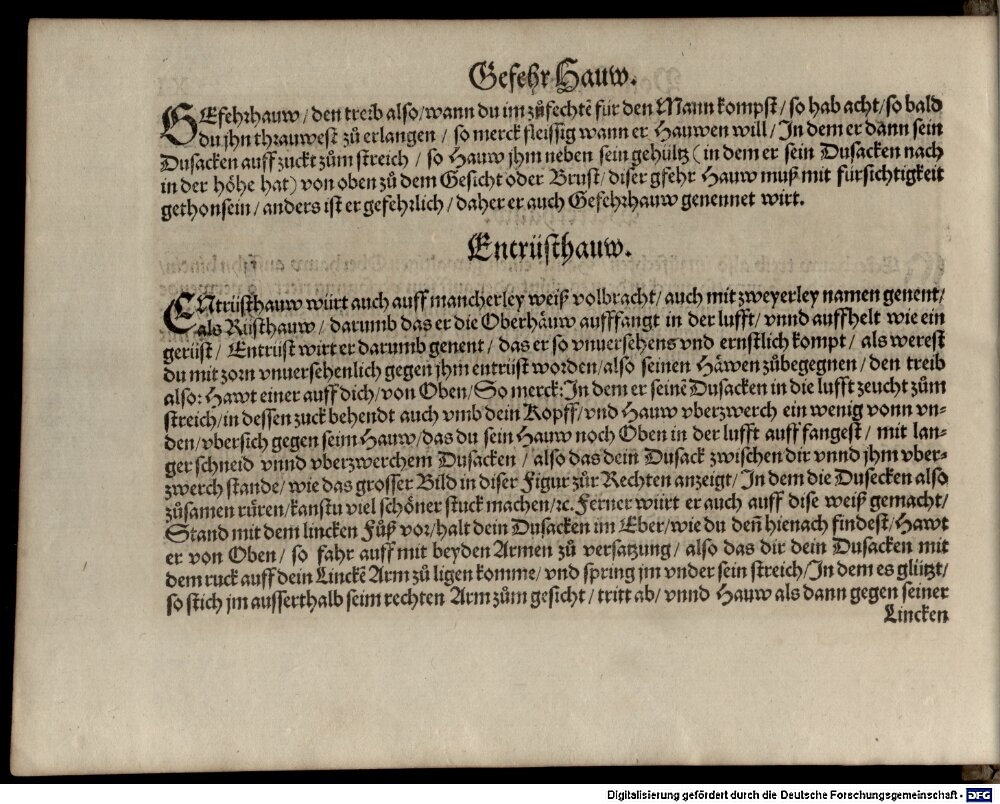 Gefehr Hauw.
GEfehrhauw / den treib also / wann du im zůfechtẽ für den Mann kompst / so hab acht / so bald
du jhn thrauwest zů erlangen / so merck fleissig wann er Hauwen will / In dem er dann sein
Dusacken auff zuckt zům streich / so Hauw jhm neben sein gehültz (in dem er sein Dusacken nach
in der höhe hat) von oben zů dem Gesicht oder Brust / diser gfehr Hauw muß mit fürsichtigkeit
gethon sein / anders ist er gefehrlich / daher er auch Gefehrhauw genennet wirt.
Entrüsthauw.
ENtrüsthauw würt auch auff mancherley weiß volbracht / auch mit zweyerley namen genent /
als Rüsthauw / darumb das er die Oberhäuw aufffangt in der lufft / vnnd auffhelt wie ein
gerüst / Entrüst wirt er darumb genent / das er so vnuersehens vnd ernstlich kompt / als werest
du mit zorn vnuersehenlich gegen jhm entrüst worden / also seinen Häwen zůbegegnen / den treib
also: Hawt einer auff dich / von Oben / So merck: In dem er seinẽ Dusacken in die lufft zeucht zům
streich / in dessen zuck behendt auch vmb dein Kopff / vnd Hauw vberzwerch ein wenig vonn vn-
den / vbersich gegen seim Hauw / das du sein Hauw noch Oben in der lufft auff fangest / mit lan-
ger schneid vnnd vberzwerchem Dusacken / also das dein Dusack zwischen dir vnnd jhm vber-
zwerch stande / wie das grosser Bild in diser Figur zůr Rechten anzeigt / In dem die Dusecken also
zůsamen růren / kanstu viel schöner stuck machen / ꝛc. Ferner würt er auch auff dise weiß gemacht /
Stand mit dem lincken Fůß vor / halt dein Dusacken im Eber / wie du deñ hienach findest / Hawt
er von Oben / so fahr auff mit beyden Armen zů versatzung / also das dir dein Dusacken mit
dem ruck auff dein Linckẽ Arm zů ligen komme / vnd spring jm vnder sein streich / In dem es glützt /
so stich jm ausserthalb seim rechten Arm zům gesicht / tritt ab / vnnd Hauw als dann gegen seiner
Lincken
Digitalisierung gefördert durch die Deutsche Forschungsgemeinschaft - DFG